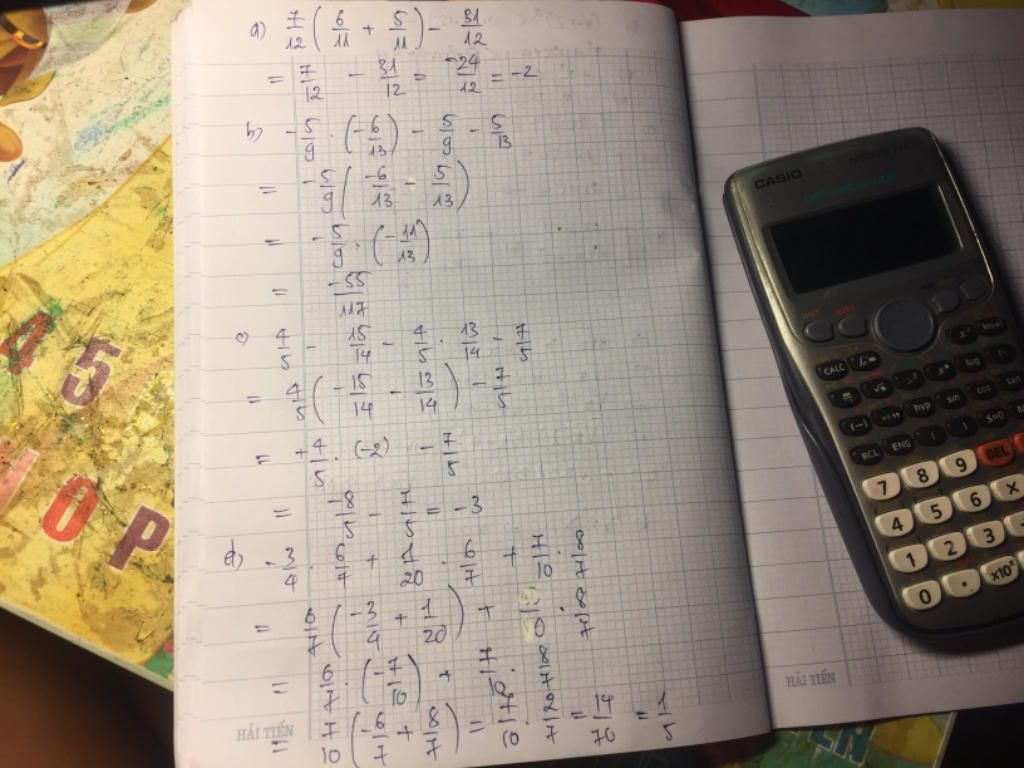 a) 7/12 ( 6/11 + 5/11 ) - 31/12
= 7/12 - 31/12 = -24/12 = -2
b) -5/9 · ( -6/13 ) - 5/9 - 5/13
= -5/9 ( -6/13 - 5/13 )
= -5/9 · ( -11/13 )
= -55/117
c) 4/5 - 15/14 - 4/5 · 13/14 - 7/5
= 4/5 ( -15/14 - 13/14 ) - 7/5
= +4/5 · (-2) - 7/5
= -8/5 - 7/5 = -3
d) -3/4 · 6/7 + 1/20 · 6/7 + 7/10 · 8/7
= 6/7 ( -3/4 + 1/20 ) + · 8/7
= 6/7 · ( -7/10 ) + 7/10 · 8/7
= 7/10 ( -6/7 + 8/7 ) = 7/10 · 2/7 = 14/70 = 1/5
HẢI TIẾN
HẢI TIẾN
45
OP
CASIO
CALC
hyp sin cos tan
RCL ENG ( )
7 8 9 DEL
4 5 6 ×
1 2 3
0 . ×10ˣ